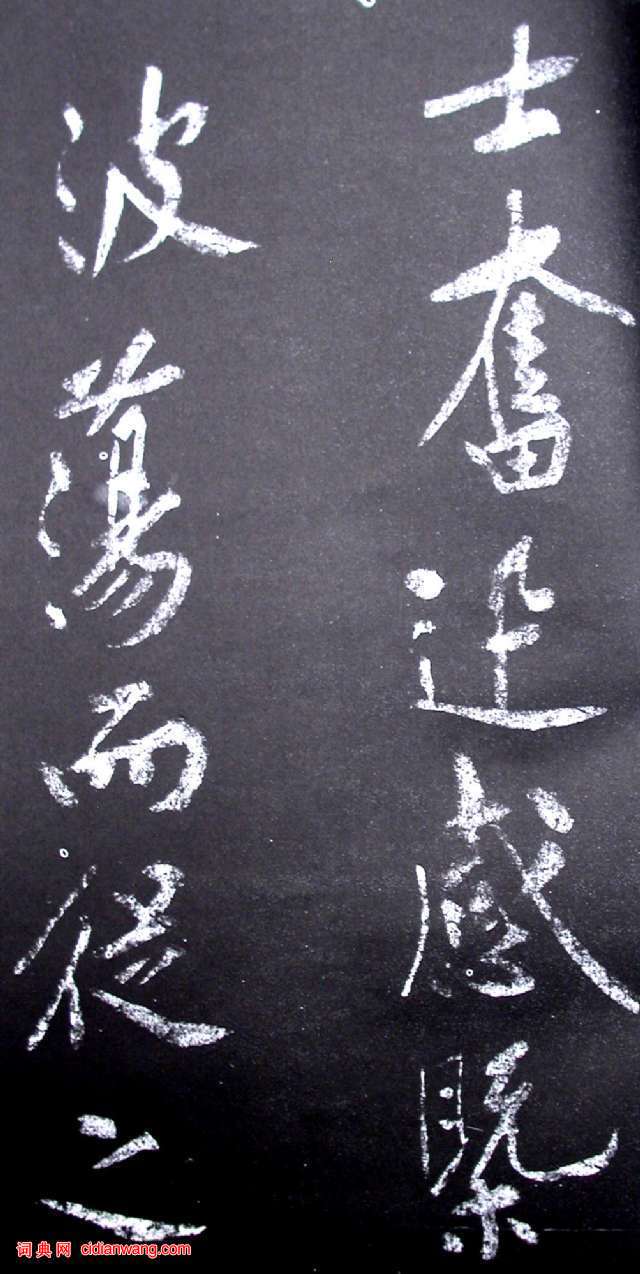 士奮迅感槩
波蕩而從之
词典网 cidianwang.com